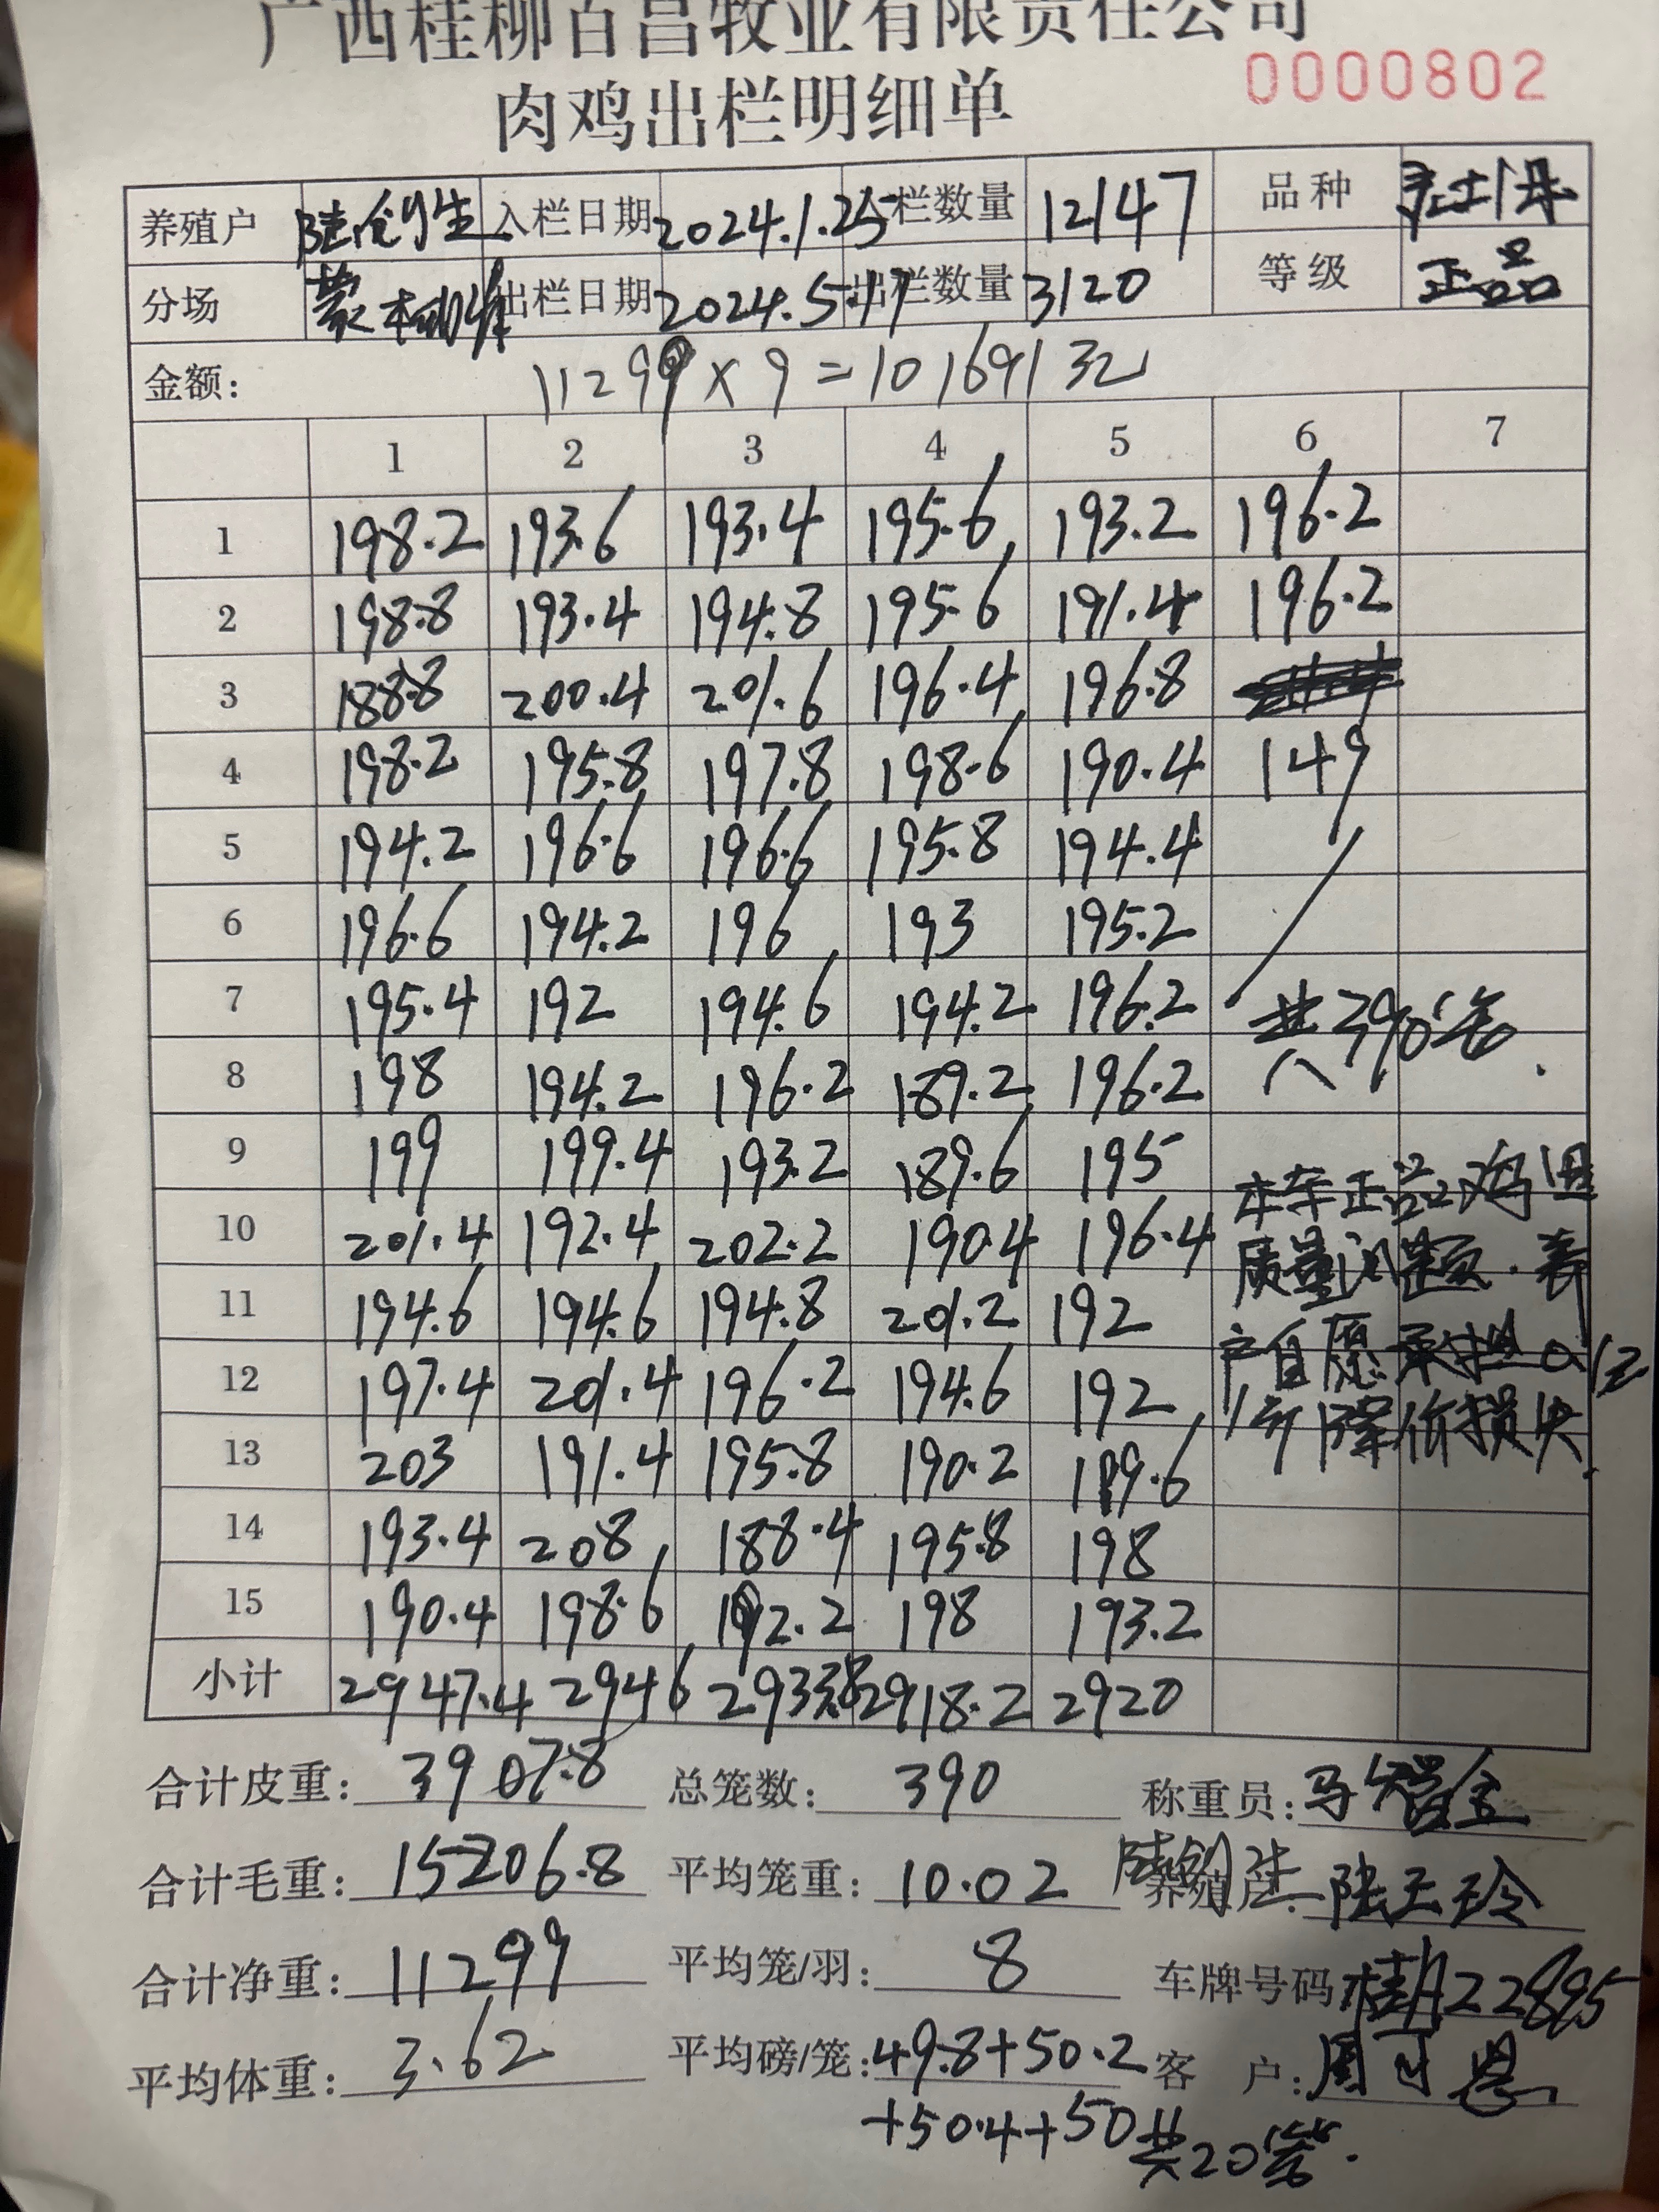 广西桂柳百昌牧业有限责任公司
肉鸡出栏明细单
0000802
养殖户 陆创生 入栏日期 2024.1.25 栏数量 12147 品种
分场 蒙 出栏日期 2024.5.17 出栏数量 3120 等级 正品
金额: 11299 x 9 = 101691元
1 2 3 4 5 6 7
1 198.2 193.6 193.4 195.6 193.2 196.2
2 198.8 193.4 194.8 195.6 191.4 196.2
3 188.8 200.4 201.6 196.4 196.8
4 198.2 195.8 197.8 198.6 190.4 149
5 194.2 196.6 196.6 195.8 194.4
6 196.6 194.2 196 193 195.2
7 195.4 192 194.6 194.2 196.2 共390笼
8 198 194.2 196.2 189.2 196.2
9 199 199.4 193.2 189.6 195 本车正品鸡因
10 201.4 192.4 202.2 190.4 196.4 质量问题.养
11 194.6 194.6 194.8 201.2 192
12 197.4 201.4 196.2 194.6 192 户自愿承担0.1元
13 203 191.4 195.8 190.2 189.6 /斤降价损失.
14 193.4 208 188.4 195.8 198
15 190.4 198.6 192.2 198 193.2
小计 2947.4 2946 2933.8 2918.2 2920
合计皮重: 3907.8 总笼数: 390 称重员: 马智金
合计毛重: 15206.8 平均笼重: 10.02 养殖户: 陆创生 陆玉玲
合计净重: 11299 平均笼/羽: 8 车牌号码 桂A22895
平均体重: 3.62 平均磅/笼: 49.8+50.2 客 户: 周可恩
+50.4+50 共20笼.